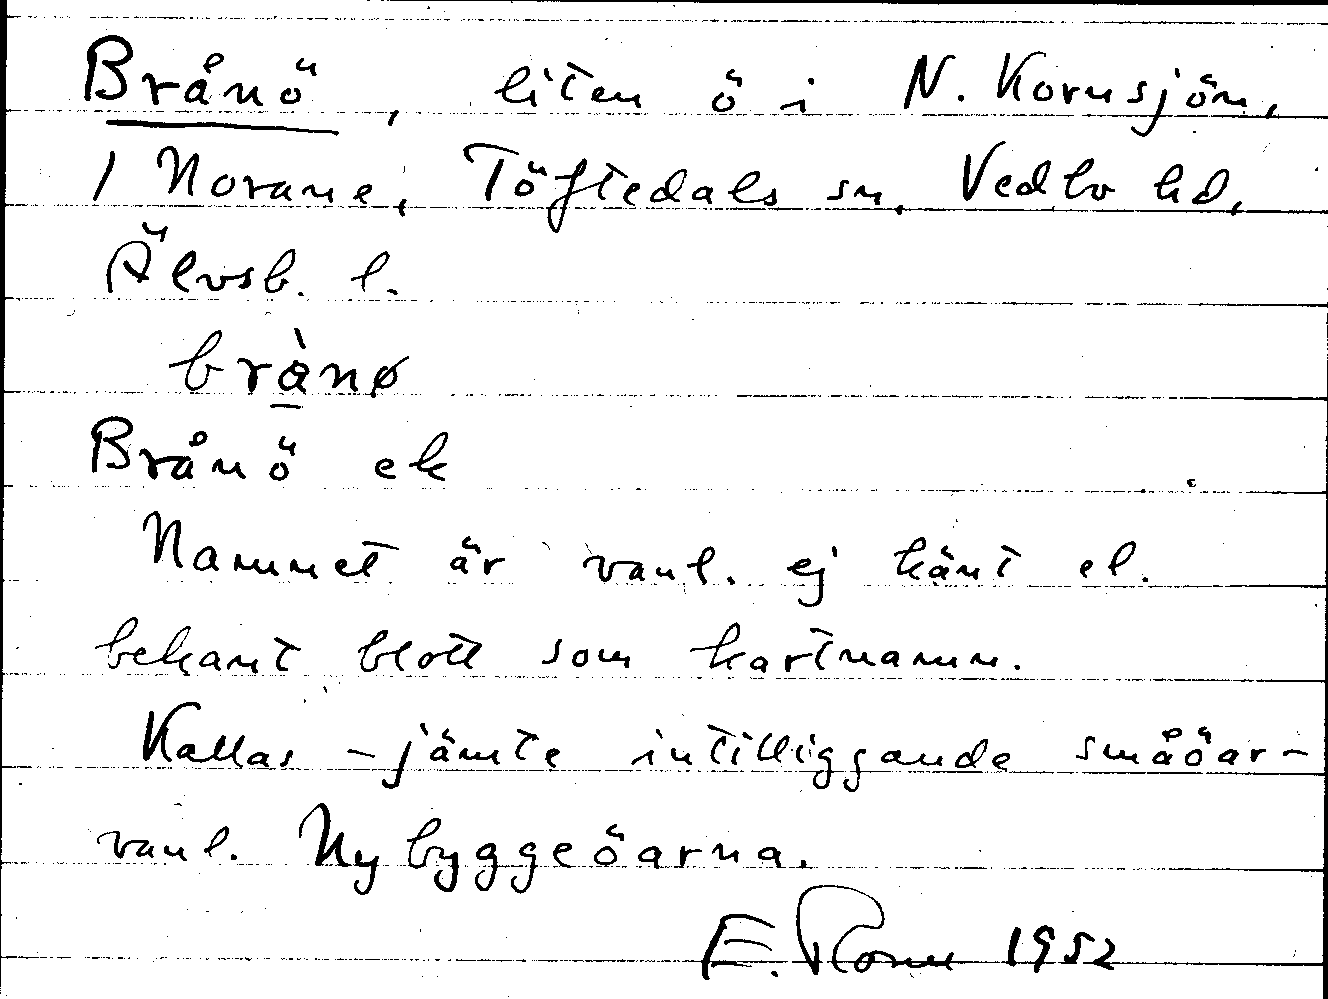 Brånö, liten ö i N. Kornsjön,
1 Norane, Töftedals sn, Vedbo hd,
Älvsb. l.
brànø
Brånö ek
Namnet är vanl. ej känt el.
bekant blott som kartnamn.
Kallas – jämte intilliggande småöar –
vanl. Nybyggeöarna.
E. 1952